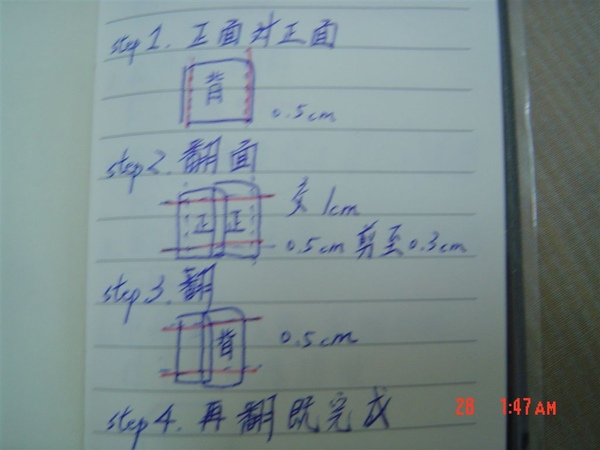 step 1. 正面对正面
背
0.5cm
step 2. 翻面
正 正
交 1cm
0.5cm 剪至 0.3cm
step 3. 翻
背
0.5cm
step 4. 再翻既完成
28 1:47AM